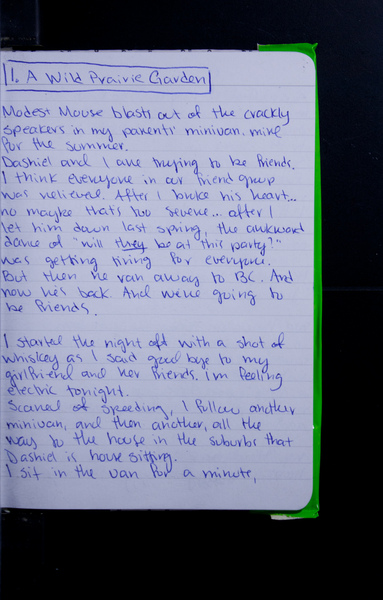 1. A Wild Prairie Garden
Modest Mouse blasts out of the crackly
speakers in my parents' minivan, mine
for the summer.
Dashiel and I are trying to be friends.
I think everyone in our friend group
was relieved. After I broke his heart...
no maybe that's too severe... after I
let him down last spring, the awkward
dance of "will they be at this party?"
was getting tiring for everyone.
But then he ran away to BC. And
now he's back. And we're going to
be friends.
I started the night off with a shot of
whiskey as I said good bye to my
girlfriend and her friends. I'm feeling
electric tonight.
Scared of speeding, I follow another
minivan, and then another, all the
way to the house in the suburbs that
Dashiel is house sitting.
I sit in the van for a minute,